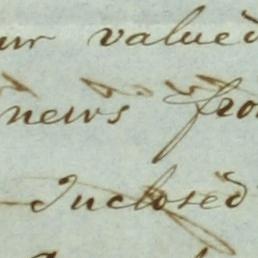 ur valued
news fro
Inclosed